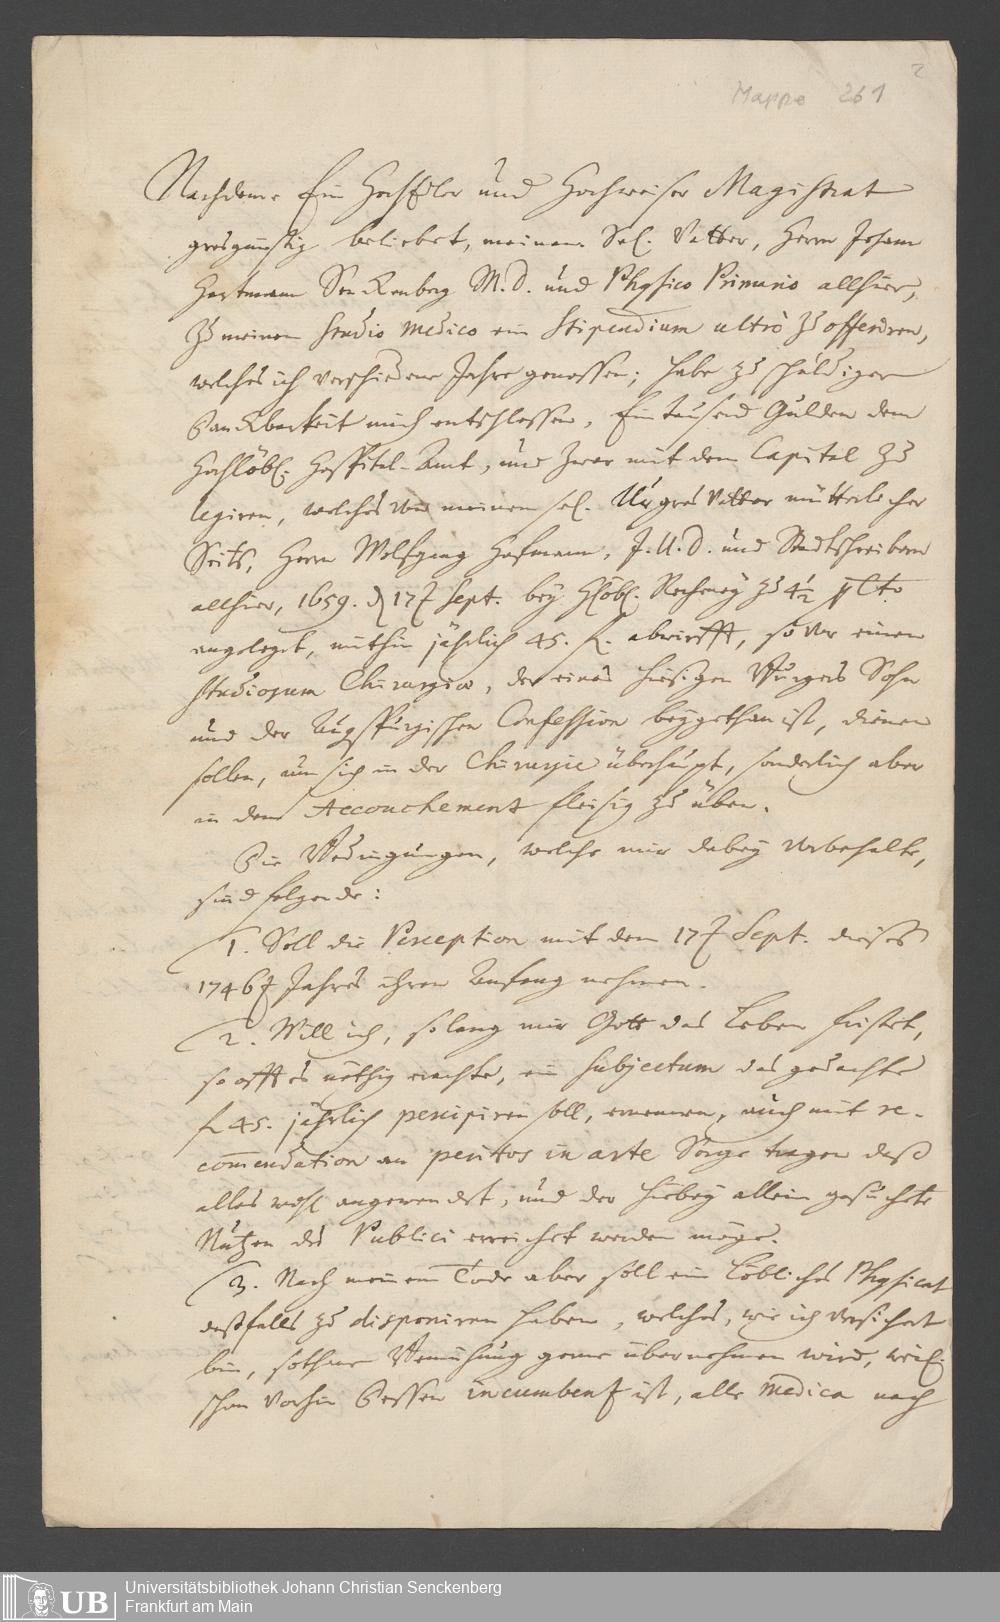 2
Mappe 261
Nachdeme Ein HochEdler und Hochweiser Magistrat
grosgünstig beliebet, meinem Sel. Vatter, Herrn Johann
Hartmann Senckenberg M. D. und Physico Primario allhier,
zu meinem Studio medico ein Stipendium ultrò zu offeriren,
welches ich verschiedene Jahre genossen; habe zu schuldiger
Danckbarkeit mich entschlossen, Ein tausend Gulden dem
Hochlöbl. Hospital-Amt, und zwar mit dem Capital zu
legiren, welches von meinem sel. Urgros Vatter mütterlicher
Seits, Herrn Wolfgang Hofmann, J. U. D. und Stadtschreibern
allhier, 1659. d. 17 Sept. bey Hlöbl. Rechney zu 4½ p Cto
angelegt, mithin jährlich 45. f. abwirfft, so vor einen
studiosum Chirurgiæ, der eines hiesigen Burgers Sohn
und der Augspurgischen Confession beygethan ist, dienen
sollen, um sich in der Chirurgie überhaupt, sonderlich aber
in dem Accouchement fleisig zu üben.
Die Bedingungen, welche mir dabey vorbehalte,
sind folgende:
1. Soll die Perception mit dem 17 Sept. dieses
1746 Jahres ihren Anfang nehmen.
2. Will ich, so lang mir Gott das Leben fristet,
so offt es nöthig erachte, ein subjectum das gedachte
f. 45. jährlich percipiren soll, ernennen, auch mit re-
comendation an peritos in arte Sorge tragen daß
alles wohl angewendet, und der hiebey allein gesuchte
Nutzen des Publici erreichet werden möge.
3. Nach meinem Tode aber soll ein Löbliches Physicat
desfalls zu disponiren haben, welches, wie ich versichert
bin, sothane Bemühung gerne übernehmen wird, weil
schon vorhin dessen incumbenz ist, alle medica nach
UB
Universitätsbibliothek Johann Christian Senckenberg
Frankfurt am Main